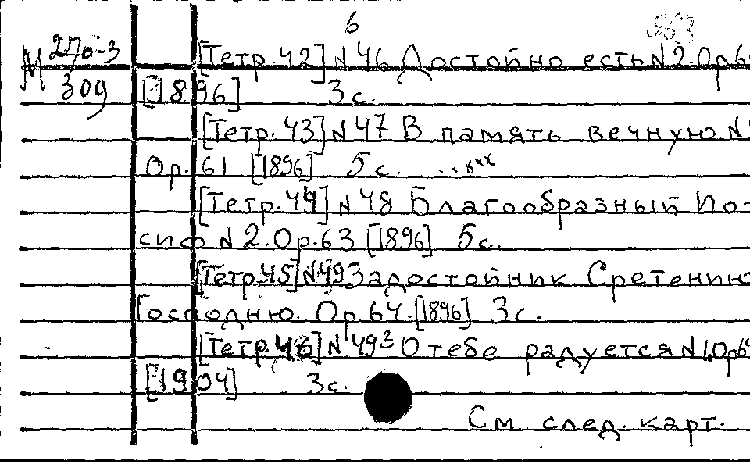 6
М 270-3 [Тетр. 42] №46 Достойно есть №2. Ор.6
309 [1896] 3с.
[Тетр. 43] №47 В память вечную №
Ор. 61 [1896] 5с.
[Тетр. 44] №48 Благообразный Ио-
сиф №2. Ор. 63 [1896] 5с.
[Тетр. 45] №49 Задостойник Сретению
Господню. Ор. 64. [1896] 3с.
[Тетр. 46] №49² О тебе радуется №1. Ор6
[1904] 3с.
См. след. карт.